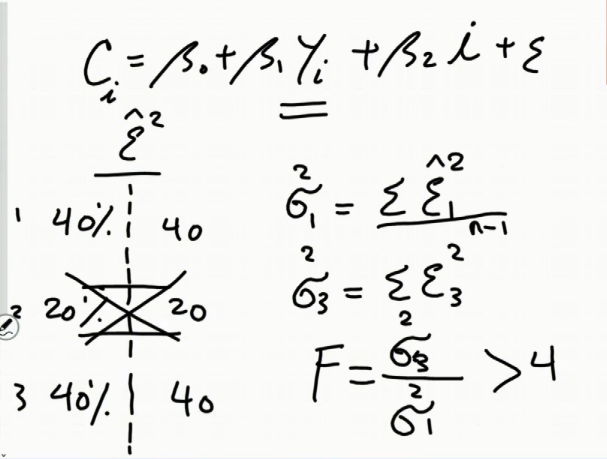 C_i = β₀ + β₁ Y_i + β₂ i + ε
ε̂²
1 40% 40
2 20% 20
3 40% 40
σ₁² = Σ ε̂₁² / n-1
σ₃² = Σ ε₃²
F = σ₃² / σ₁² > 4